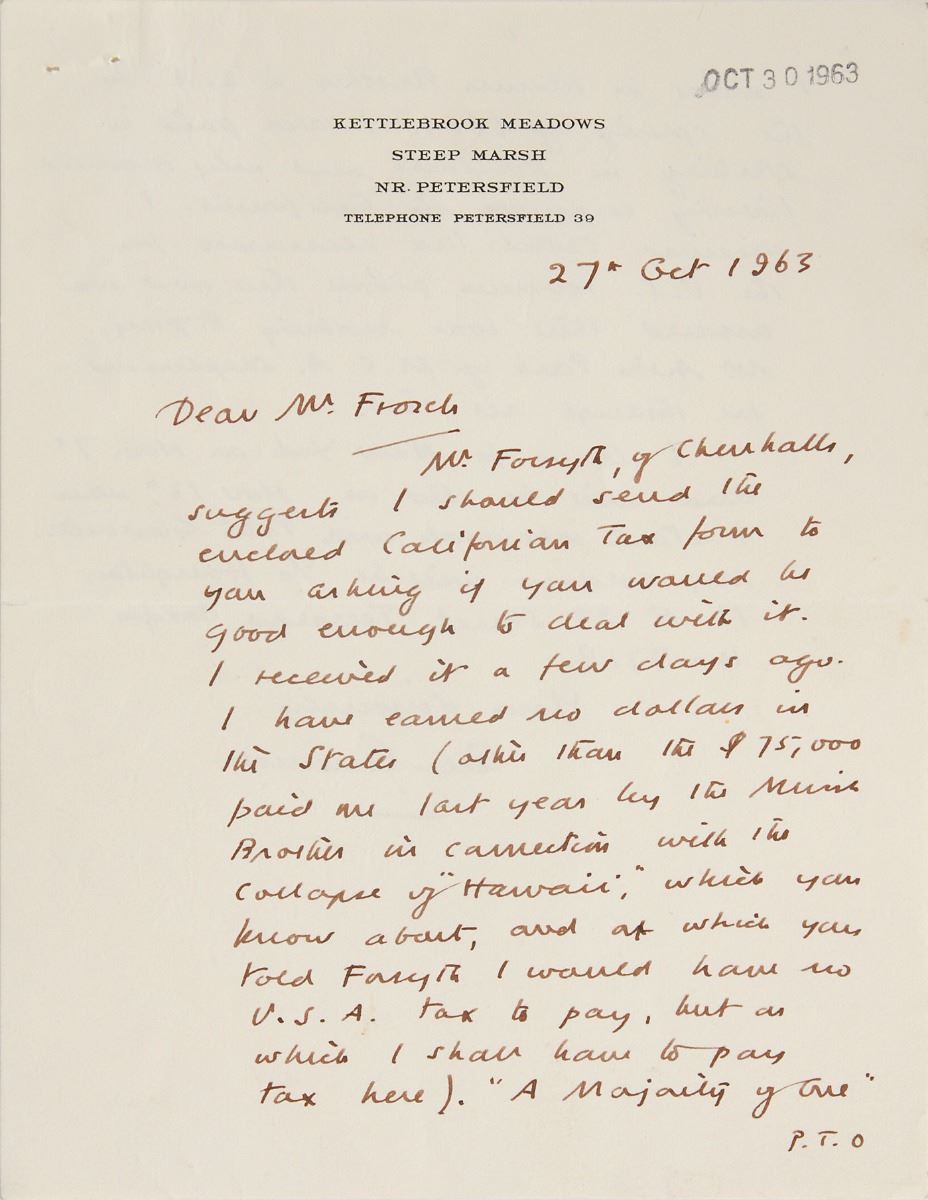 OCT 30 1963
KETTLEBROOK MEADOWS
STEEP MARSH
NR. PETERSFIELD
TELEPHONE PETERSFIELD 39
27th Oct 1963
Dear Mr. Frosch
Mr. Forsyth, of Chenhalls,
suggests I should send the
enclosed Californian Tax form to
you asking if you would be
good enough to deal with it.
I received it a few days ago.
I have earned no dollars in
the States (other than the $75,000
paid me last year by the Mirisch
Brothers in connection with the
collapse of "Hawaii," which you
know about, and of which you
told Forsyth I would have no
U.S.A. tax to pay, but on
which I shall have to pay
tax here). "A Majority of One"
P.T.O